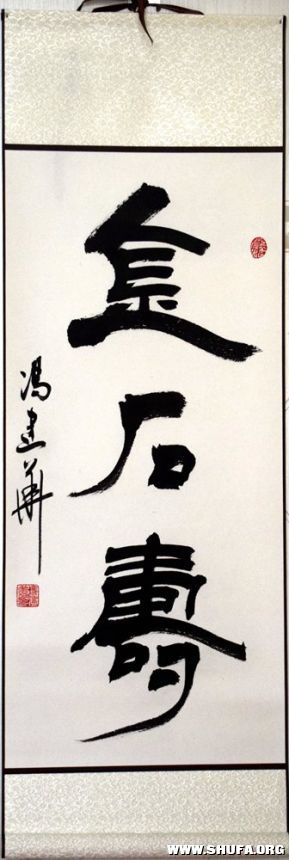 金石壽
冯建华
WWW.SHUFA.ORG